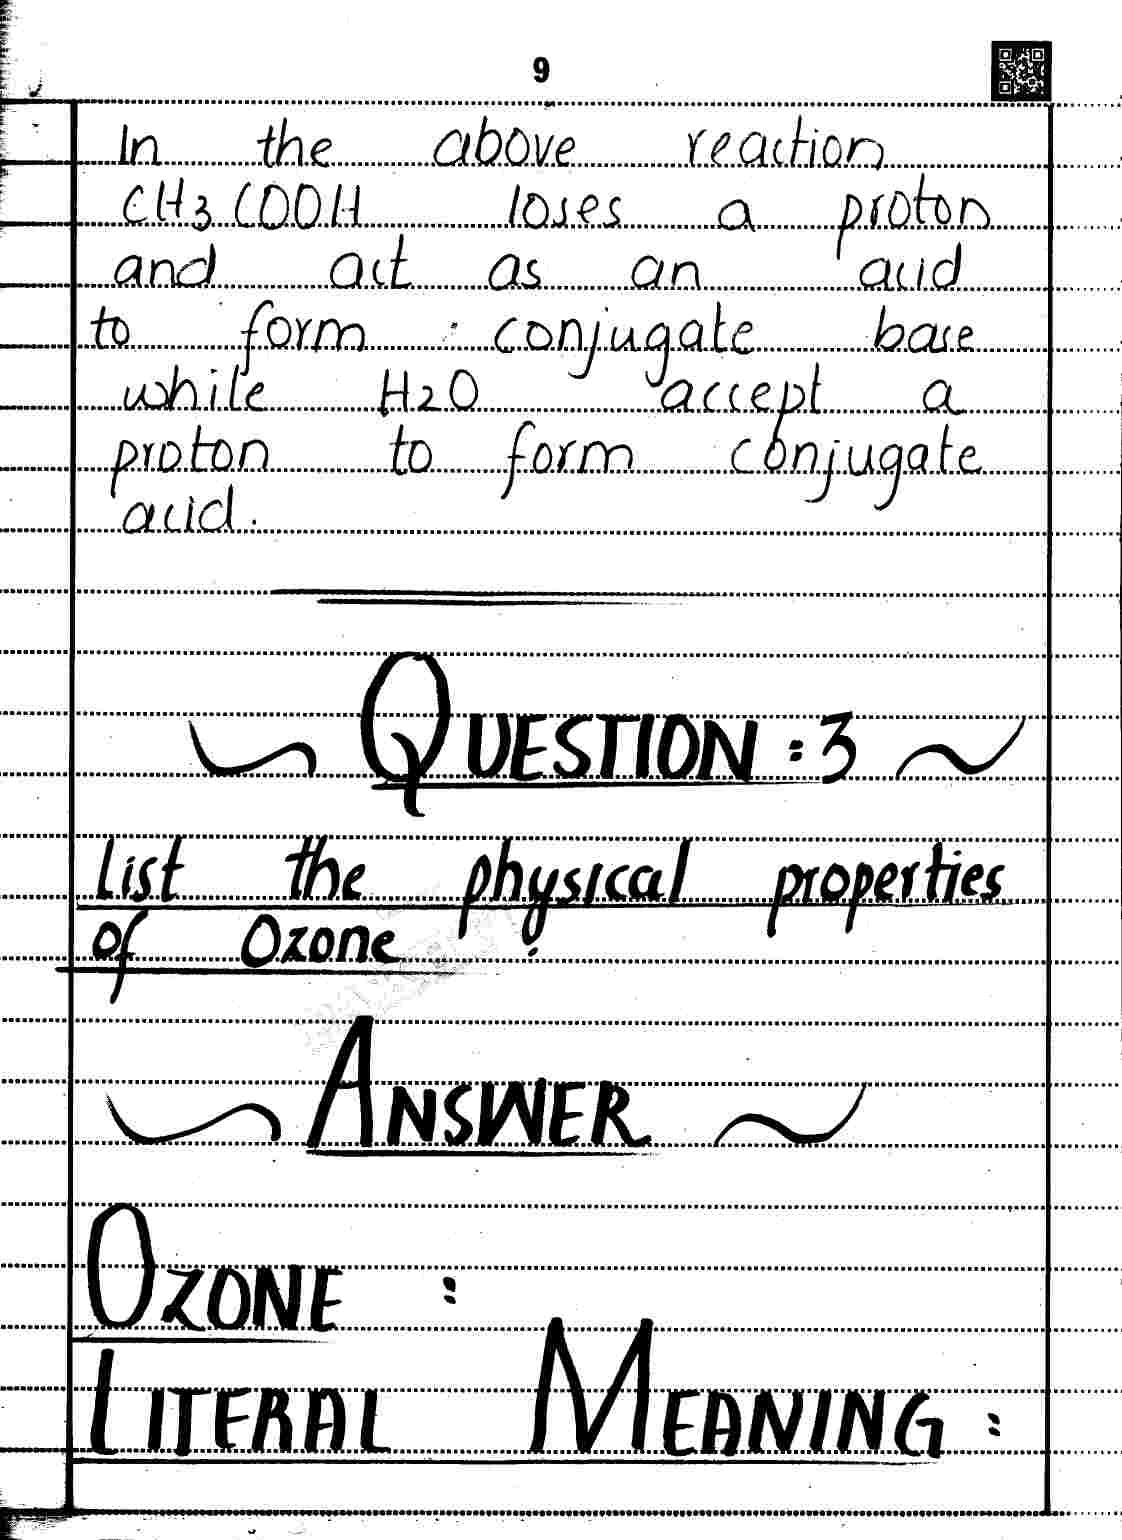 9
In the above reaction
CH3COOH loses a proton
and act as an acid
to form : conjugate base
while H2O accept a
proton to form conjugate
acid.
QUESTION : 3
List the physical properties
of Ozone ?
ANSWER
OZONE :
LITERAL MEANING :